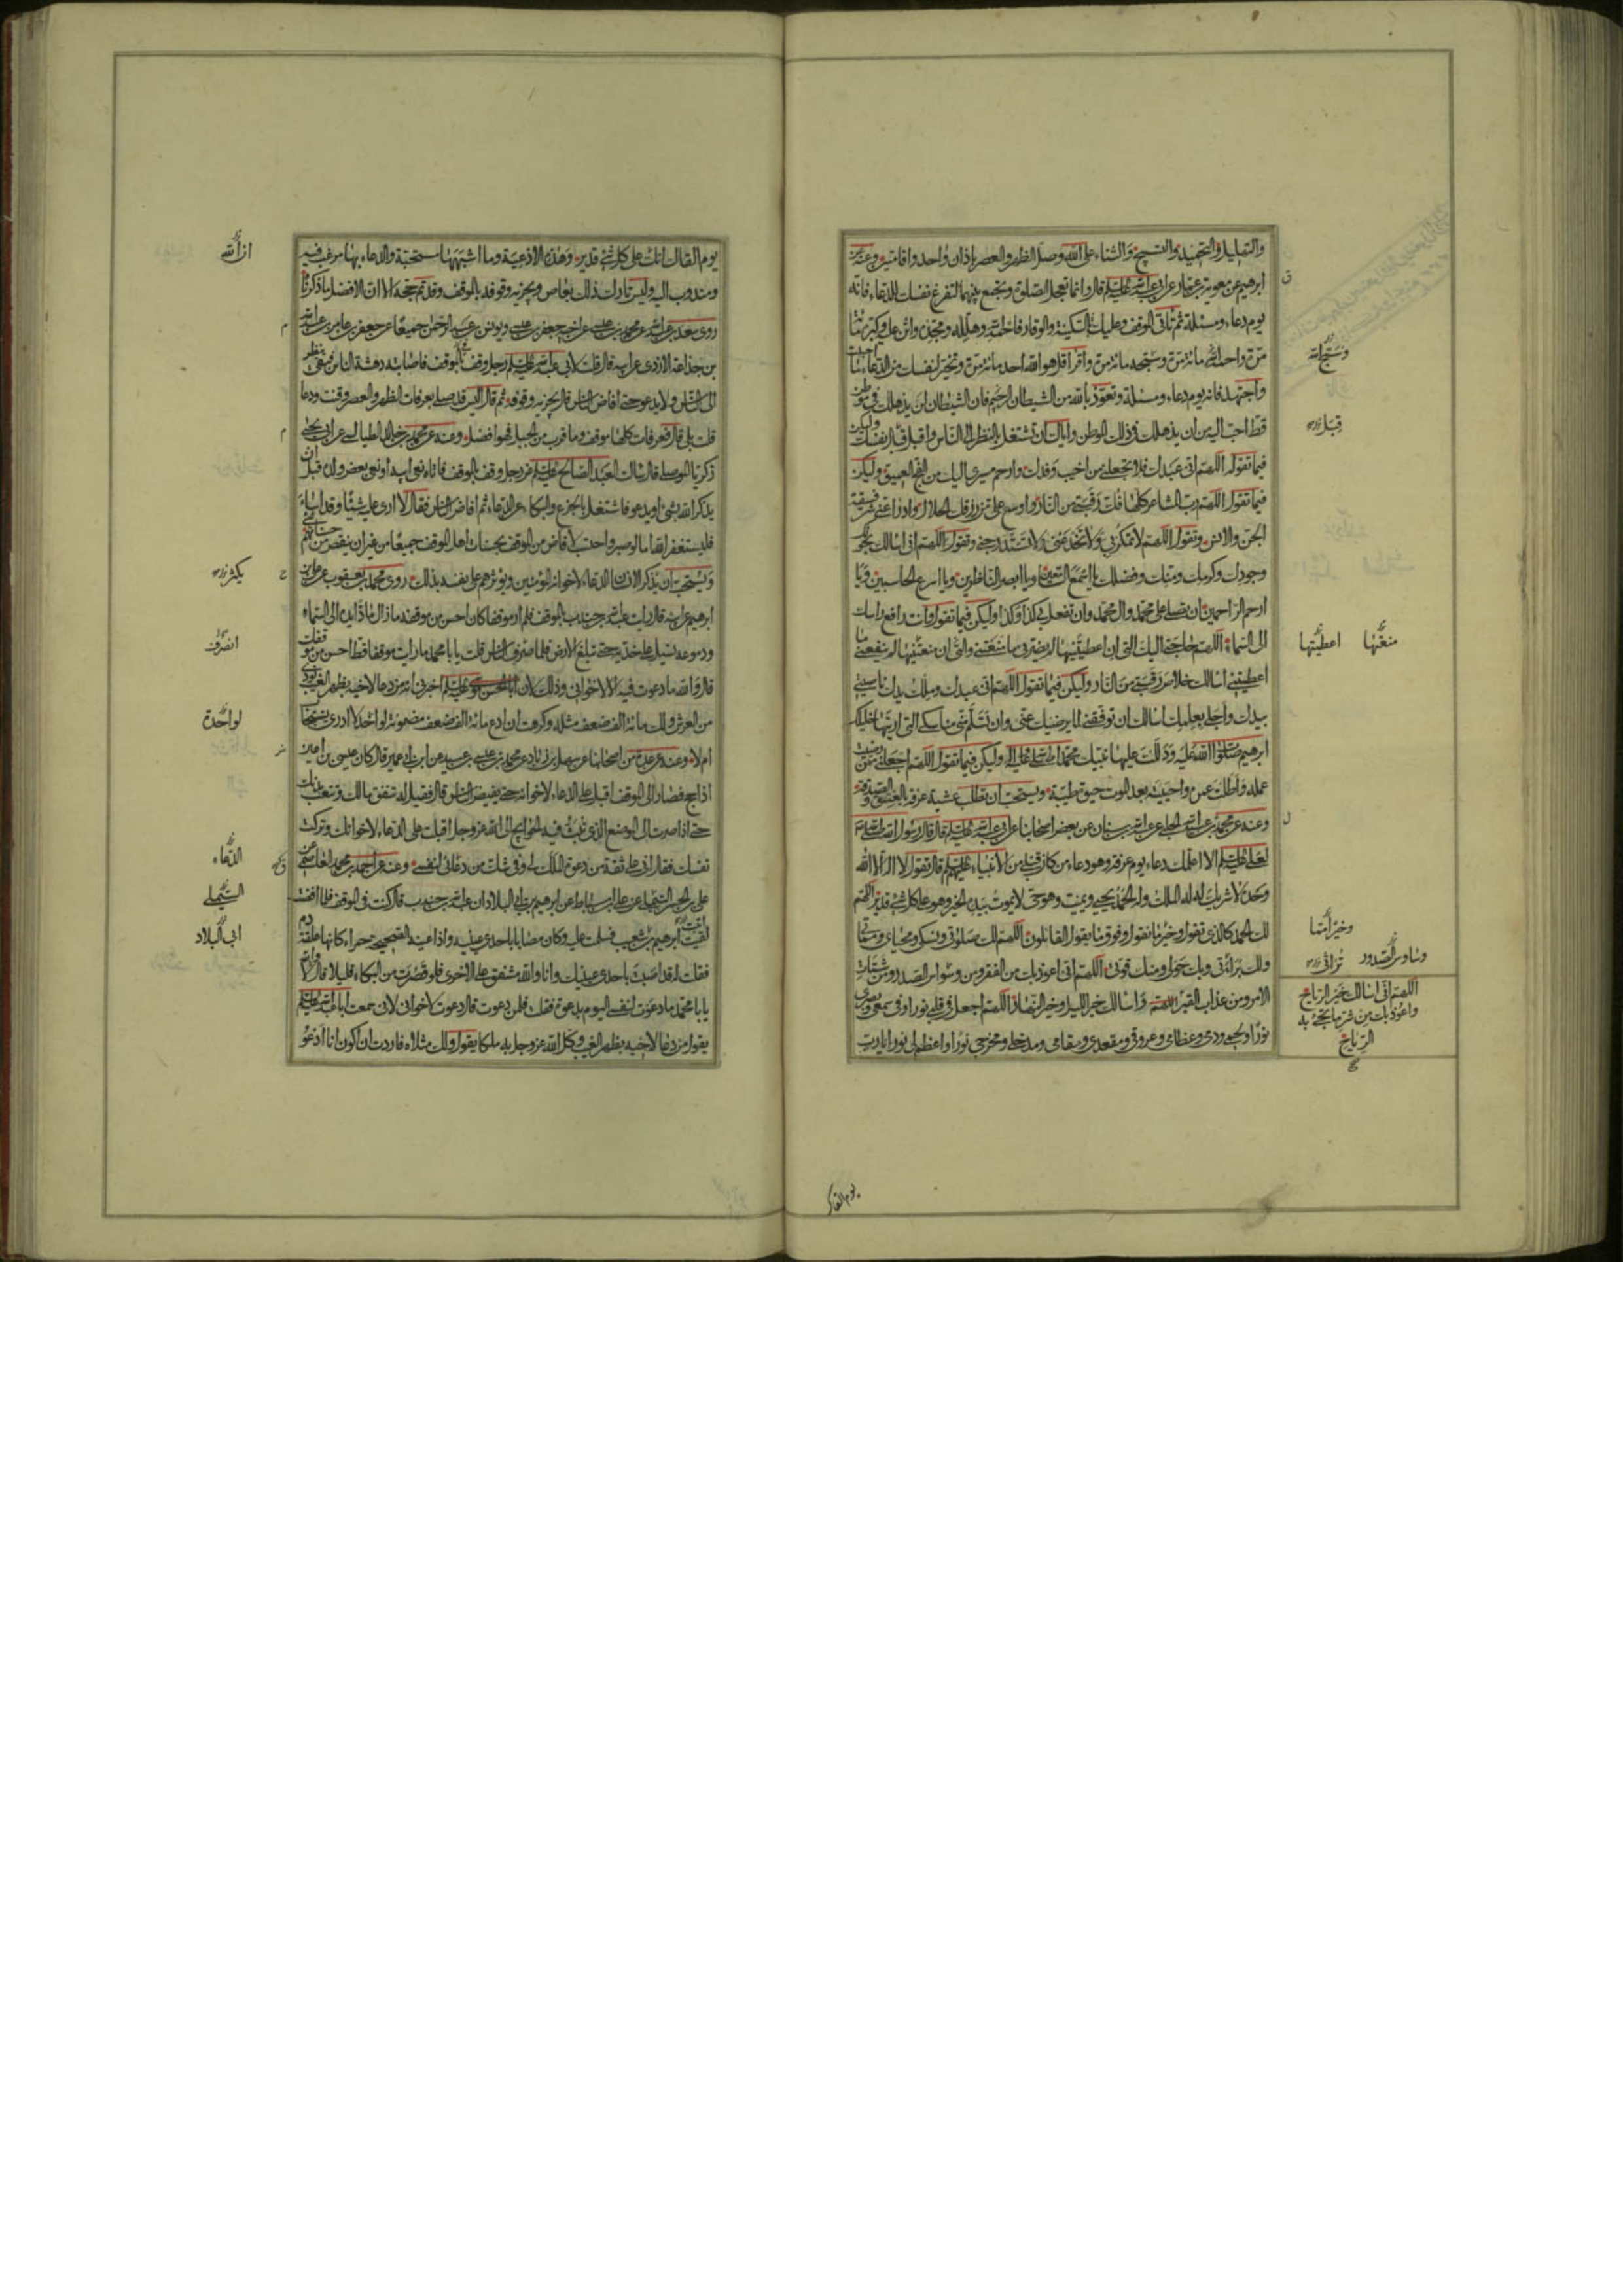 والتهليل والتحميد والتسبيح والثناء على الله وصل الظهر والعصر باذان واحد واقامتين وعنه عن
ابرهيم عن معوية بن عمار عن ابي عبد الله عليه السلام قال وانما تعجل الصلوة وتجمع بينهما لتفرغ نفسك للدعاء فانه
يوم دعاء ومسئلة ثم تاتى الموقف وعليك السكينة والوقار فاحمد الله وهلله ومجده واثن عليه وكبره مائة
مرة واحمد الله مائة مرة وسبحه مائة مرة واقرا قل هو الله احد مائة مرة وتخير لنفسك من الدعاء ما احببت
واجتهد فانه يوم دعاء ومسئلة وتعوذ بالله من الشيطان الرجيم فان الشيطان لن يذهلك في موطن
قط احب اليه من ان يذهلك في ذلك الموطن واياك ان تشتغل بالنظر الى الناس واقبل قبل نفسك وليكن
فيما تقوله اللهم انى عبدك فلا تجعلني من اخيب وفدك وارحم مسيري اليك من الفج العميق وليكن
فيما تقول اللهم رب المشاعر كلها فك رقبتي من النار واوسع على من رزقك الحلال وادرا عنى شر فسقة
الجن والانس وتقول اللهم لا تمكر بي ولا تخدعني ولا تستدرجني وتقول اللهم انى اسالك بحولك
وجودك وكرمك ومنك وفضلك يا اسمع السامعين ويا ابصر الناظرين ويا اسرع الحاسبين ويا
ارحم الراحمين ان تصلى على محمد وال محمد وان تفعل بي كذا وكذا وليكن فيما تقول وانت رافع راسك
الى السماء اللهم حاجتي اليك التى ان اعطيتنيها لم يضرنى ما منعتني والتى ان منعتنيها لم ينفعني ما
اعطيتني اسالك خلاص رقبتي من النار وليكن فيما تقول اللهم انى عبدك وملك يدك ناصيتي
بيدك واجلى بعلمك اسالك ان توفقني لما يرضيك عنى وان تسلم منى مناسكى التى اريتها خليلك
ابرهيم صلوات الله عليه ودللت عليها نبيك محمدا صلى الله عليه واله وليكن فيما تقول اللهم اجعلني ممن رضيت
عمله واطلت عمره واحييته بعد الموت حيوة طيبة ويستحب ان تطلب عشية عرفة بالعتق والصدقة
وعنه عن محمد بن عبد الله الحلبي عن عبد الله بن سنان عن بعض اصحابنا عن ابي عبد الله عليه السلام قال قال رسول الله صلى الله عليه واله
لعلى عليه السلم الا اعلمك دعاء يوم عرفة وهو دعاء من كان قبلى من الانبياء عليهم السلم قال تقول لا اله الا الله
وحده لا شريك له له الملك وله الحمد يحيى ويميت وهو حى لا يموت بيده الخير وهو على كل شئ قدير اللهم
لك الحمد كالذى تقول وخيرا مما نقول وفوق ما يقول القائلون اللهم لك صلوتى ونسكى ومحياى ومماتى
ولك براءتى وبك حولى ومنك قوتى اللهم انى اعوذ بك من الفقر ومن وسواس الصدور ومن شتات
الامر ومن عذاب القبر اللهم واسالك خير الليل وخير النهار اللهم اجعل في قلبي نورا وفى سمعى وبصرى
نورا ولحمى ودمى وعظامى وعروقى ومقعدى ومقامى ومدخلى ومخرجى نورا واعظم لى نورا يا رب
ونسبح الله
قبل
منعتنيها اعطيتنيها
وخيرا مما
وساوس الصدور تراثى
اللهم انى اسالك خير الرياح
واعوذ بك من شر ما يجئ به
الرياح
يوم القاك
يوم القاك انك على كل شئ قدير وهذه الادعية وما اشبهها مستحبة والدعاء بها مرغب فيه
ومندوب اليه وليس تارك ذلك بعاص ويجزيه وقوفه بالموقف وقد تم حجه الا ان الافضل ما ذكرناه
روى سعد بن عبد الله عن محمد بن عيسى عن اخيه جعفر بن عيسى ويونس بن عبد الرحمن جميعا عن جعفر بن عامر بن عبد الله
بن جذاعة الازدى عن ابيه قال قلت لابي عبد الله عليه السلم رجل وقف بالموقف فاصابته دهشة الناس فبقى ينظر
الى الناس ولا يدعو حتى افاض الناس قال يجزيه وقوفه ثم قال اليس قد صلى بعرفات الظهر والعصر وقنت ودعا
قلت بلى قال فعرفات كلها موقف وما قرب من الجبل فهو افضل وعنه عن محمد بن خالد الطيالسى عن ابى يحيى
زكريا الموصلى قال سالت العبد الصالح عليه السلم عن رجل وقف بالموقف فاتاه نعى ابيه او نعى بعض ولده قبل ان
يذكر الله بشئ او يدعو فاشتغل بالجزع والبكاء عن الدعاء ثم افاض الناس فقال لا ارى عليه شيئا وقد اساء
فليستغفر الله اما لو صبر واحتسب لافاض من الموقف بحسنات اهل الموقف جميعا من غير ان ينقص من حسناتهم شئ
ويستحب ان يذكر الانسان الدعاء لاخوانه المؤمنين ويؤثرهم على نفسه بذلك روى محمد بن يعقوب عن على بن
ابرهيم عن ابيه قال رايت عبد الله بن جندب بالموقف فلم ار موقفا كان احسن من موقفه ما زال مادا يديه الى السماء
ودموعه تسيل على خديه حتى تبلغ الارض فلما صرف الناس قلت يا با محمد ما رايت موقفا قط احسن من موقفك
قال والله ما دعوت فيه الا لاخوانى وذلك لان ابا الحسن موسى عليه السلم اخبرنى انه من دعا لاخيه بظهر الغيب نودى
من العرش ولك مائة الف ضعف مثله وكرهت ان ادع مائة الف ضعف مضمونة لواحد لا ادرى يستجاب
ام لا وعنه عن عدة من اصحابنا عن سهل بن زياد عن محمد بن عيسى بن عبيد عن ابن ابي عمير قال كان عيسى بن اعين
اذا حج فصار الى الموقف اقبل على الدعاء لاخوانه حتى يفيض الناس قال فقيل له تنفق مالك وتتعب بدنك
حتى اذا صرت الى الموضع الذى تبث فيه الحوايج الى الله عز وجل اقبلت على الدعاء لاخوانك وتركت
نفسك فقال انى على ثقة من دعوة الملك لى وفى شك من دعائى لنفسى وعنه عن احمد بن محمد العاصمى عن
على بن الحسن التيملى عن على بن اسباط عن ابرهيم بن ابى البلاد ان عبد الله بن جندب قال كنت فى الموقف فلما افضت
لقيت ابرهيم بن شعيب فسلمت عليه وكان مصابا باحدى عينيه واذا عينه الصحيحة حمراء كانها علقة دم
فقلت له قد اصبت باحدى عينيك وانا والله مشفق على الاخرى فلو قصرت من البكاء قليلا فقال لا والله
يا با محمد ما دعوت لنفسى اليوم بدعوة فقلت فلمن دعوت قال دعوت لاخوانى لانى سمعت ابا عبد الله عليه السلم
يقول من دعا لاخيه بظهر الغيب وكل الله عز وجل به ملكا يقول ولك مثلاه فاردت ان اكون انا ادعو
ان الله
يكثر
انصرف
لواحدة
الدعاء
التيملى
ابى البلاد